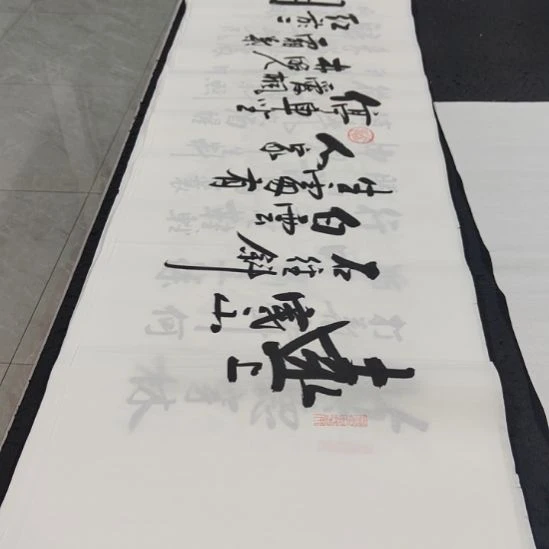 遠上
寒山
石徑斜
白雲
生處有
人家
停車坐
愛楓
林晚
霜葉
紅於二
月